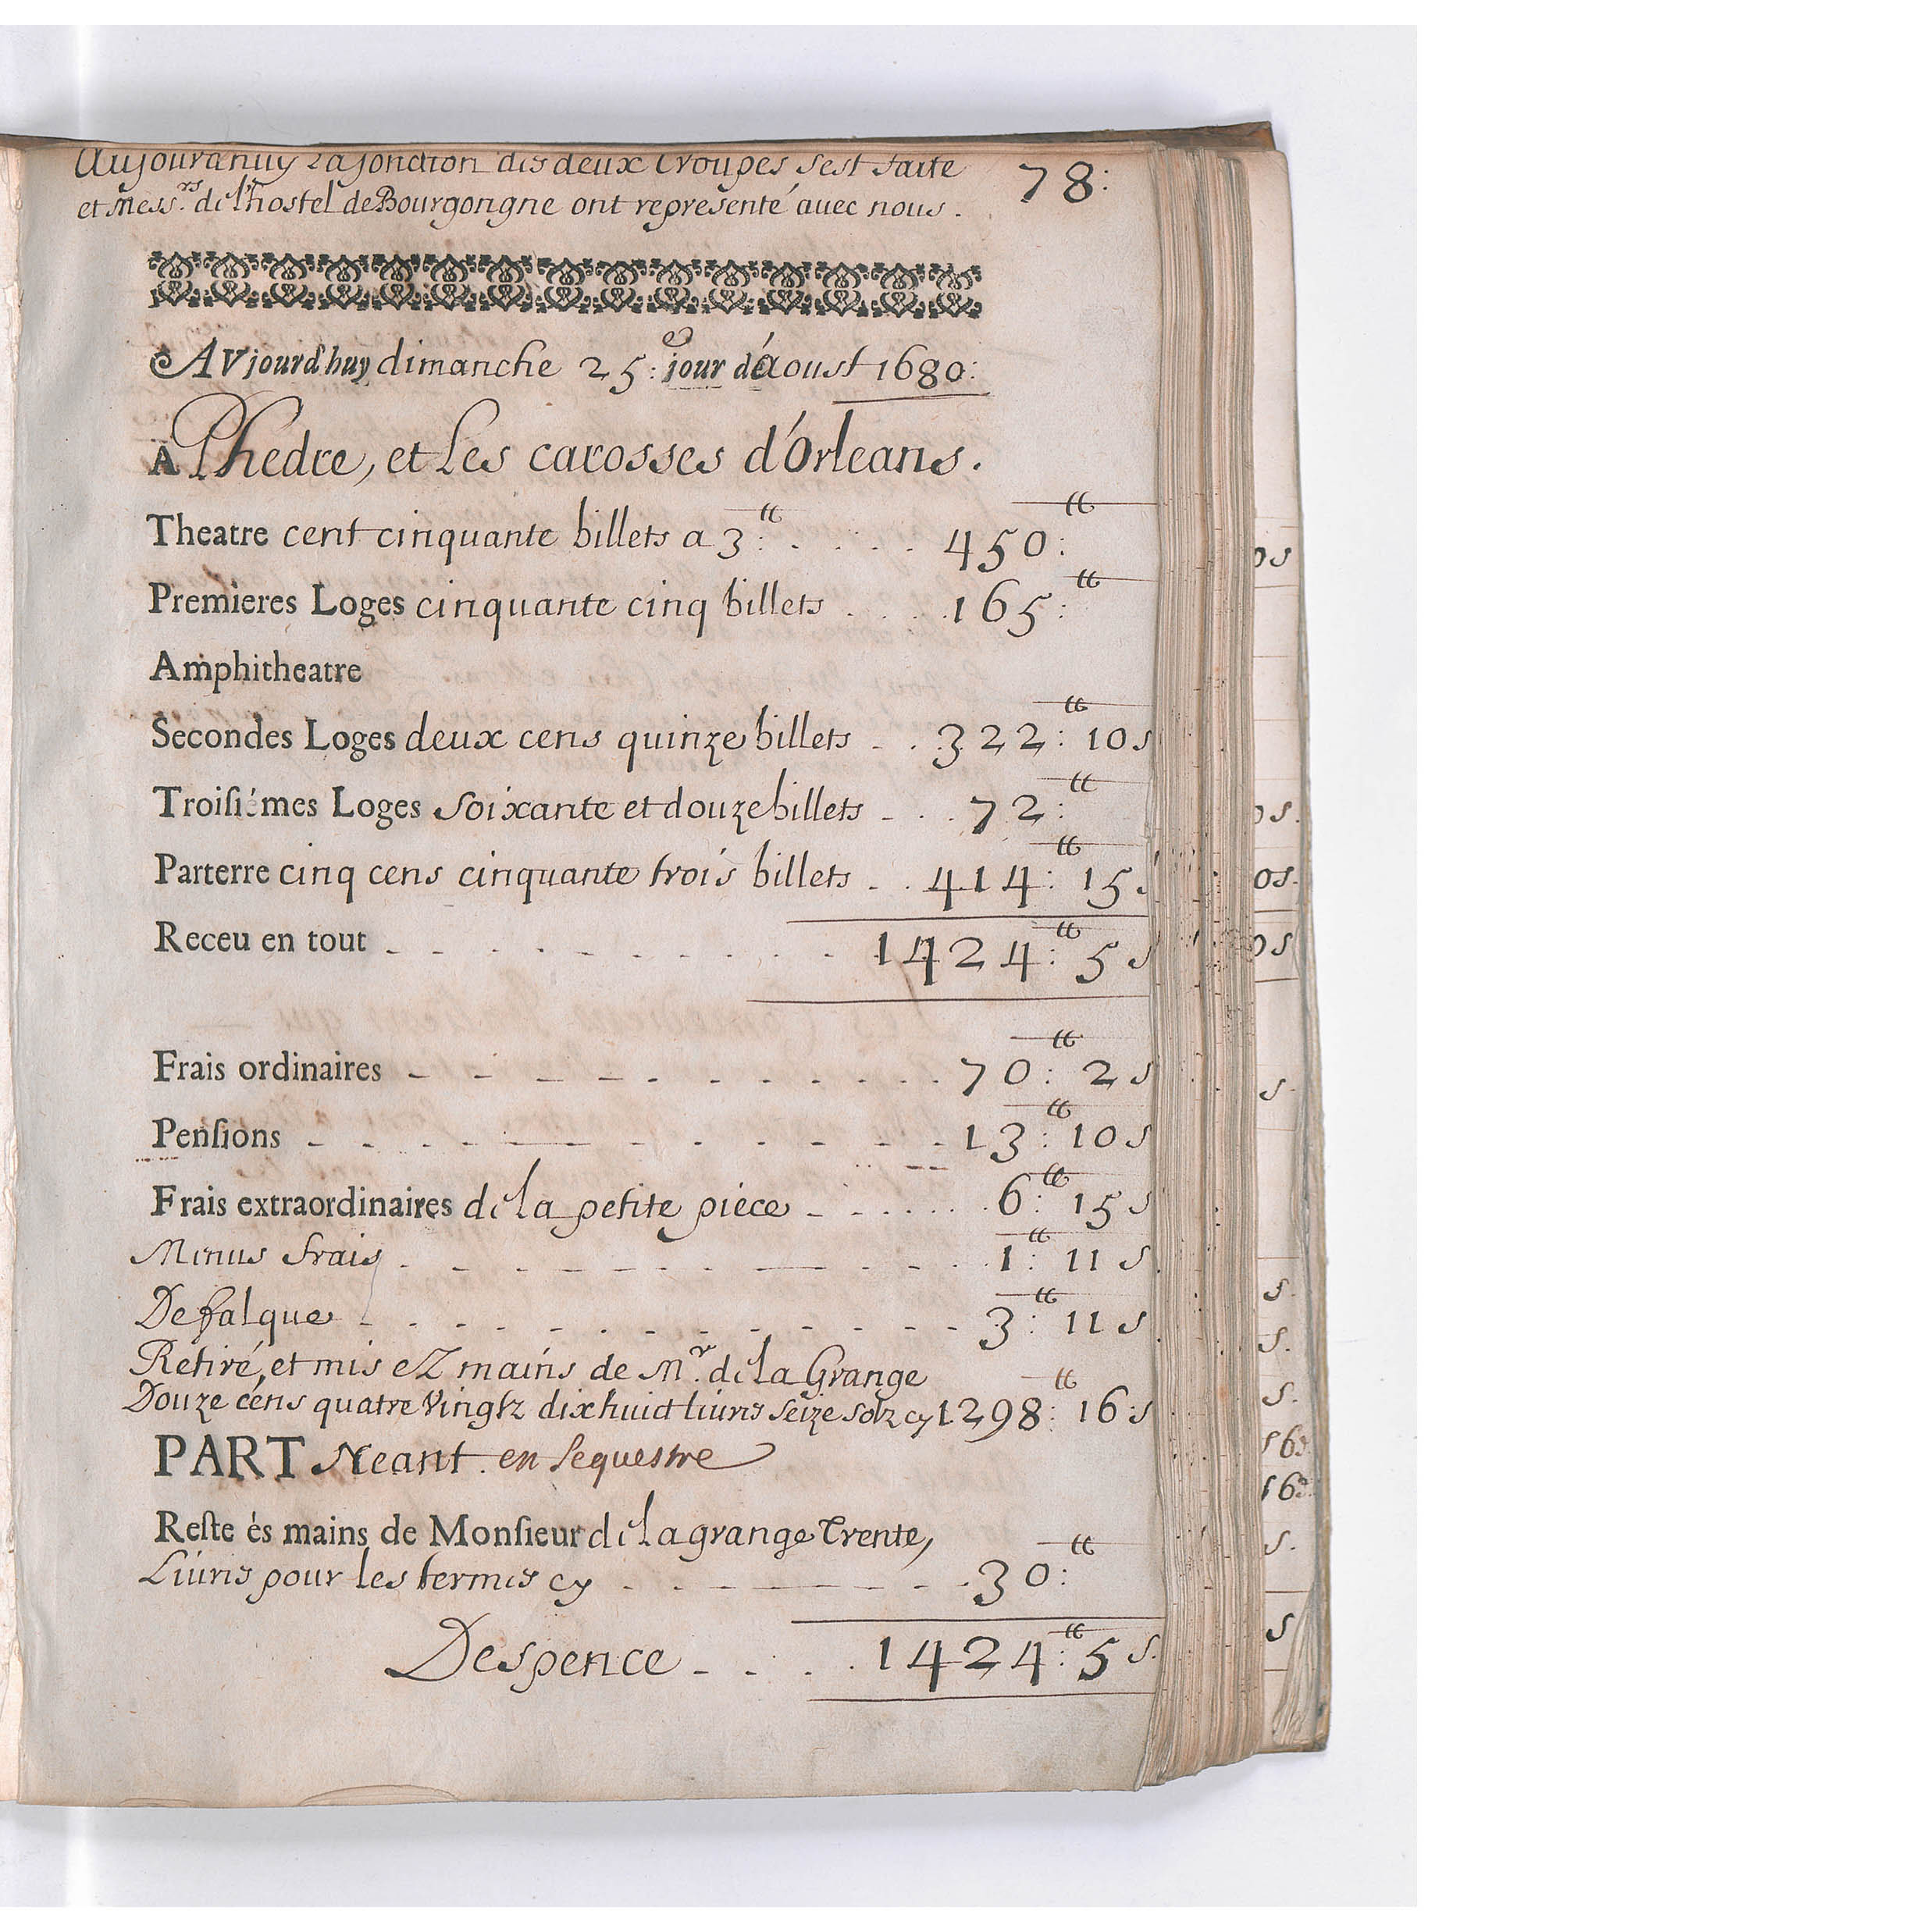 Aujourdhuy La Jonction des deux Troupes s'est faite
78:
et Mess.rs de l'hostel de Bourgongne ont representé auec nous.
AVjourd'huy dimanche 25: e jour d'aoust 1680:
A Phedre, et Les carosses d'Orleans.
Theatre cent cinquante billets a 3:tt . . . . . 450:tt
Premieres Loges cinquante cinq billets . . . . 165:tt
Amphitheatre
Secondes Loges deux cens quinze billets . . . 322:tt 10 s
Troisiémes Loges Soixante et douze billets - . . 72:tt
Parterre cinq cens cinquante trois billets . . 414:tt 15 s
Receu en tout - - - - - - - - 1424:tt 5 s
Frais ordinaires - - - - - - - - 70:tt 2 s
Pensions - - - - - - - - 13:tt 10 s
Frais extraordinaires de la petite piece - . . . . . 6:tt 15 s
Menus frais . - - - - - - - 1:tt 11 s
Defalque - - - - - - - - 3:tt 11 s
Retiré, et mis eZ mains de Mr. de la Grange
Douze cens quatre Vingtz dix huict Liures Seize Solz cy 1298:tt 16 s
PART Neant. en sequestre
Reste és mains de Monsieur de la grange Trente,
Liures pour les termes cy . . - - - - 30:tt
Despence - . . . . 1424:tt 5 s.